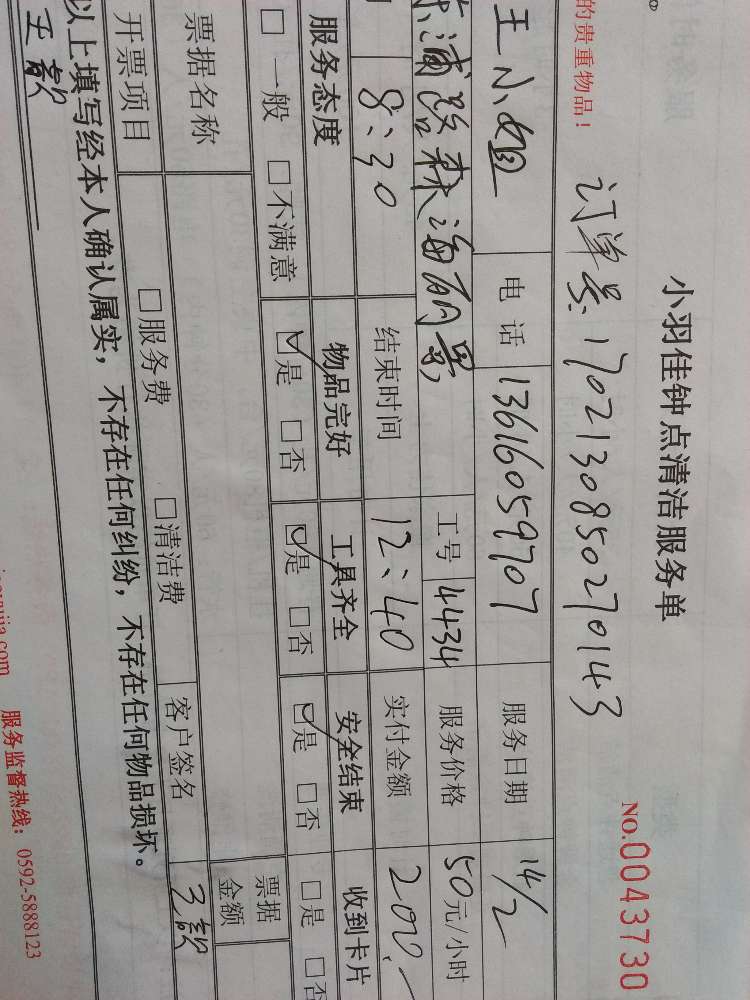 小羽佳钟点清洁服务单
NO.0043730
订单号:1702130850270143
的贵重物品!
王小姐 电话 13616059707 服务日期 14/2
工号 4434 服务价格 50元/小时
8:30 结束时间 12:40 实付金额 200.-
服务态度 物品完好 工具齐全 安全结束 收到卡片
□一般 □不满意 ☑是 □否 ☑是 □否 ☑是 □否 □是 □否
票据名称 票据金额
开票项目 □服务费 □清洁费 客户签名
以上填写经本人确认属实,不存在任何纠纷,不存在任何物品损坏。
服务监督热线:0592-5888123